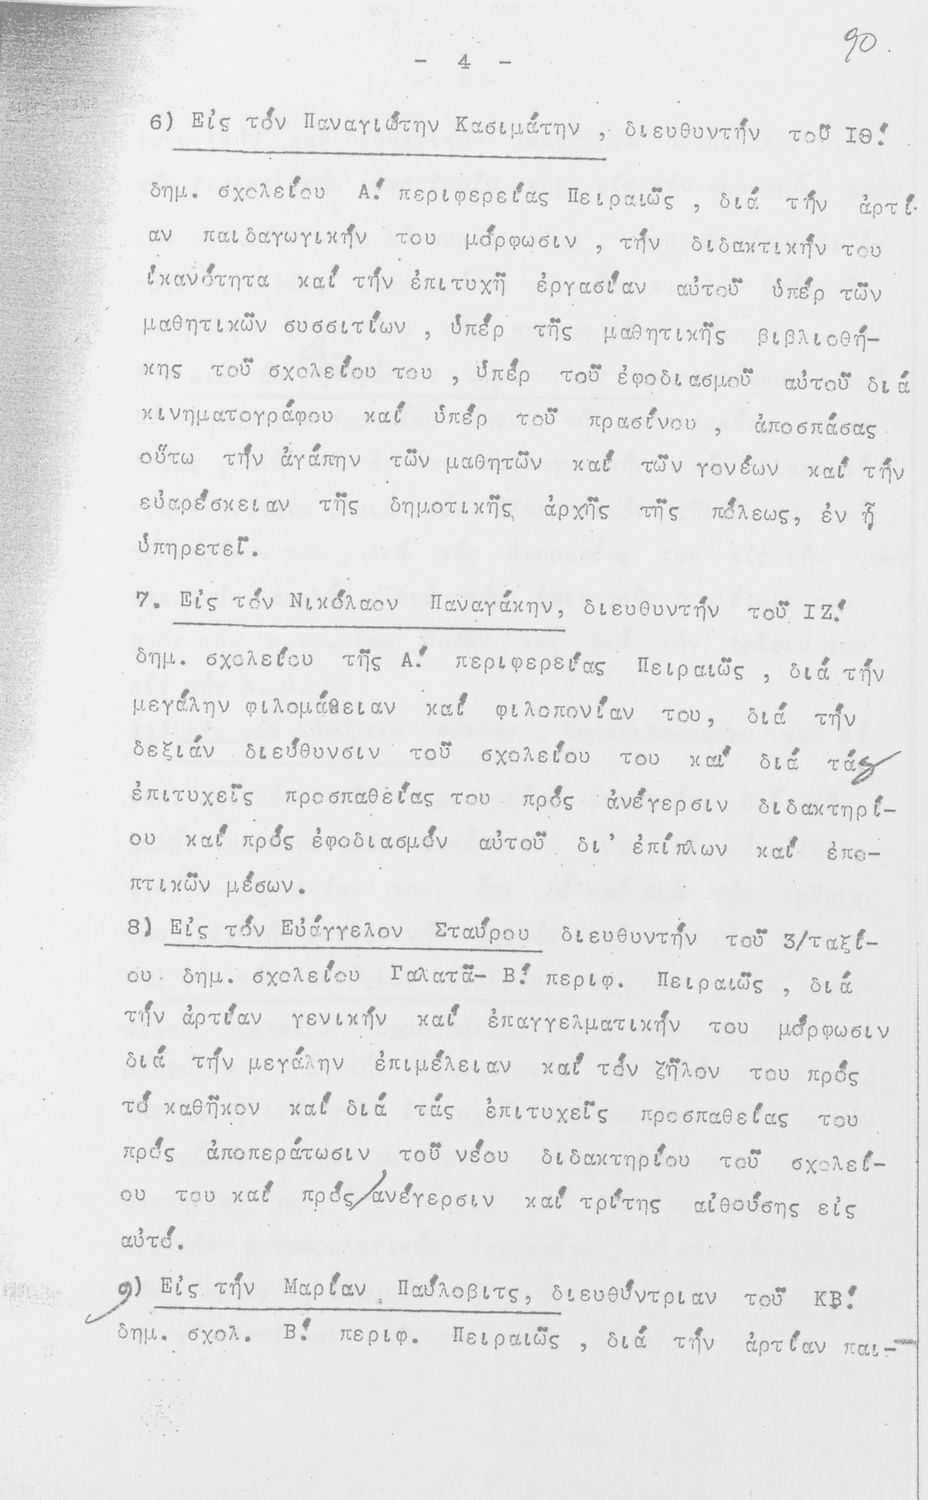 90.
- 4 -
6) Εἰς τόν Παναγιώτην Κασιμάτην , διευθυντήν τοῦ ΙΘ!
δημ. σχολείου Α! περιφερείας Πειραιῶς , διά τήν ἀρτί-
αν παιδαγωγικήν του μόρφωσιν , τήν διδακτικήν του
ἱκανότητα καί τήν ἐπιτυχῆ ἐργασίαν αὐτοῦ ὑπέρ τῶν
μαθητικῶν συσσιτίων , ὑπέρ τῆς μαθητικῆς βιβλιοθή-
κης τοῦ σχολείου του , ὑπέρ τοῦ ἐφοδιασμοῦ αὐτοῦ διά
κινηματογράφου καί ὑπέρ τοῦ πρασίνου , ἀποσπάσας
οὕτω τήν ἀγάπην τῶν μαθητῶν καί τῶν γονέων καί τήν
εὐαρέσκειαν τῆς δημοτικῆς ἀρχῆς τῆς πόλεως, ἐν ᾗ
ὑπηρετεῖ.
7. Εἰς τόν Νικόλαον Παναγάκην, διευθυντήν τοῦ ΙΖ!
δημ. σχολείου τῆς Α! περιφερείας Πειραιῶς , διά τήν
μεγάλην φιλομάθειαν καί φιλοπονίαν του, διά τήν
δεξιάν διεύθυνσιν τοῦ σχολείου του καί διά τάς
ἐπιτυχεῖς προσπαθείας του πρός ἀνέγερσιν διδακτηρί-
ου καί πρός ἐφοδιασμόν αὐτοῦ δι' ἐπίπλων καί ἐπο-
πτικῶν μέσων.
8) Εἰς τόν Εὐάγγελον Σταύρου διευθυντήν τοῦ 3/ταξί-
ου δημ. σχολείου Γαλατᾶ- Β! περιφ. Πειραιῶς , διά
τήν ἀρτίαν γενικήν καί ἐπαγγελματικήν του μόρφωσιν
διά τήν μεγάλην ἐπιμέλειαν καί τόν ζῆλον του πρός
τό καθῆκον καί διά τάς ἐπιτυχεῖς προσπαθείας του
πρός ἀποπεράτωσιν τοῦ νέου διδακτηρίου τοῦ σχολεί-
ου του καί πρός/ἀνέγερσιν καί τρίτης αἰθούσης εἰς
αὐτό.
9) Εἰς τήν Μαρίαν Παύλοβιτς, διευθύντριαν τοῦ ΚΒ!
δημ. σχολ. Β! περιφ. Πειραιῶς , διά τήν ἀρτίαν παι-